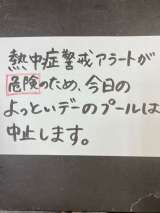 熱中症警戒アラートが
危険のため、今日の
よっといデーのプールは
中止します。